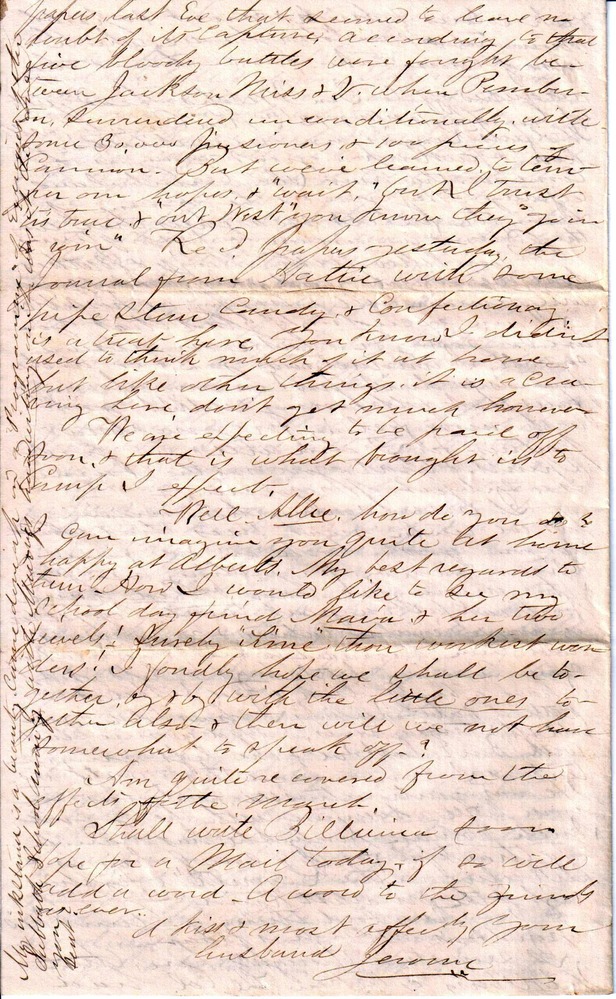 papers last Eve that seemed to leave no
doubt of its Capture, according to that
five bloody battles were fought be-
tween Jackson Miss & V. when Pember-
on, surrendered unconditionally, with
some 30,000 prisoners & 100 pieces of
Cannon. But we've learned to tem-
per our hopes, & "wait," but I trust
is true, & "out West" you know they "go in
& win" Rec'd papers yesterday, the
Journal from Hattie with some
pipe stem Candy, & Confectionary
is a treat here, you know I didn't
used to think much of it at home
but like other things, it is a cra-
ving here, don't get much however
We are expecting to be paid off
soon, & that is what brought us to
Camp I expect.
Well Allie, how do you do?
can imagine you quite at home
happy at Alberts. My best regards to
him. How I would like to see my
School day friend Maria & her two
jewels! Surely "Time" thou workest won
ders! I fondly hope we shall be to-
gether, by & by, with the little ones to-
gether also, & then will we not have
somewhat to speak off?
Am quite recovered from the
effects of the March.
Shall write soon
hope for a Mail today, if so will
add a word. A word to the friends
as ever.
A kiss & most affectly your
husband Jerome
My inkstand is a beauty
you
sent